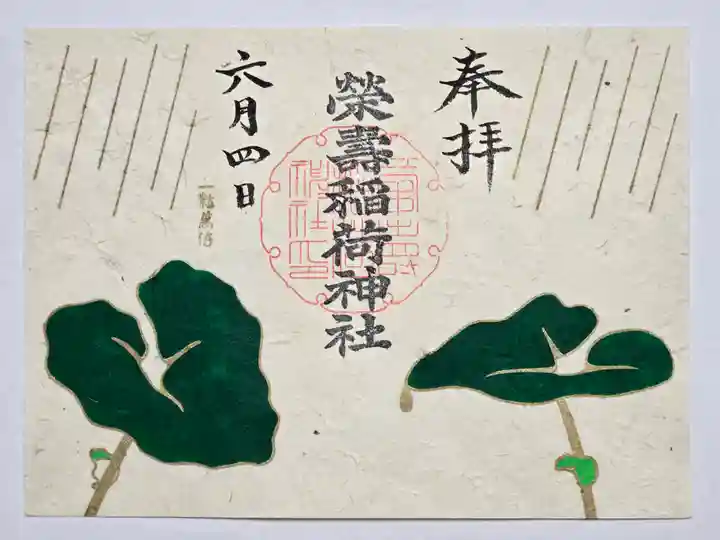 奉拝
榮壽稲荷神社
六月四日
一粒萬倍